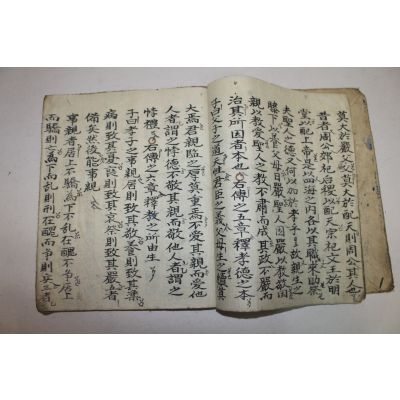 莫大於嚴父嚴父莫大於配天則周公其人也
昔者周公郊祀后稷以配天宗祀文王於明
堂以配上帝是以四海之內各以其職來助祭
夫聖人之德又何以加於孝乎故親生之
膝下以養父母日嚴聖人因嚴以教敬因
親以教愛聖人之教不肅而成其政不嚴而
治其所因者本也○右傳之五章釋孝德之本
子曰父子之道天性君臣之義父母生之續莫
大焉君親臨之厚莫重焉不愛其親而愛他
人者謂之悖德不敬其親而敬他人者謂之
悖禮○右傳之六章釋教之所由生
子曰孝子之事親居則致其敬養則致其樂
病則致其憂喪則致其哀祭則致其嚴五者
備矣然後能事親
事親者居上不驕爲下不乱在醜不爭居上
而驕則亡爲下而乱則刑在醜而爭則兵三者